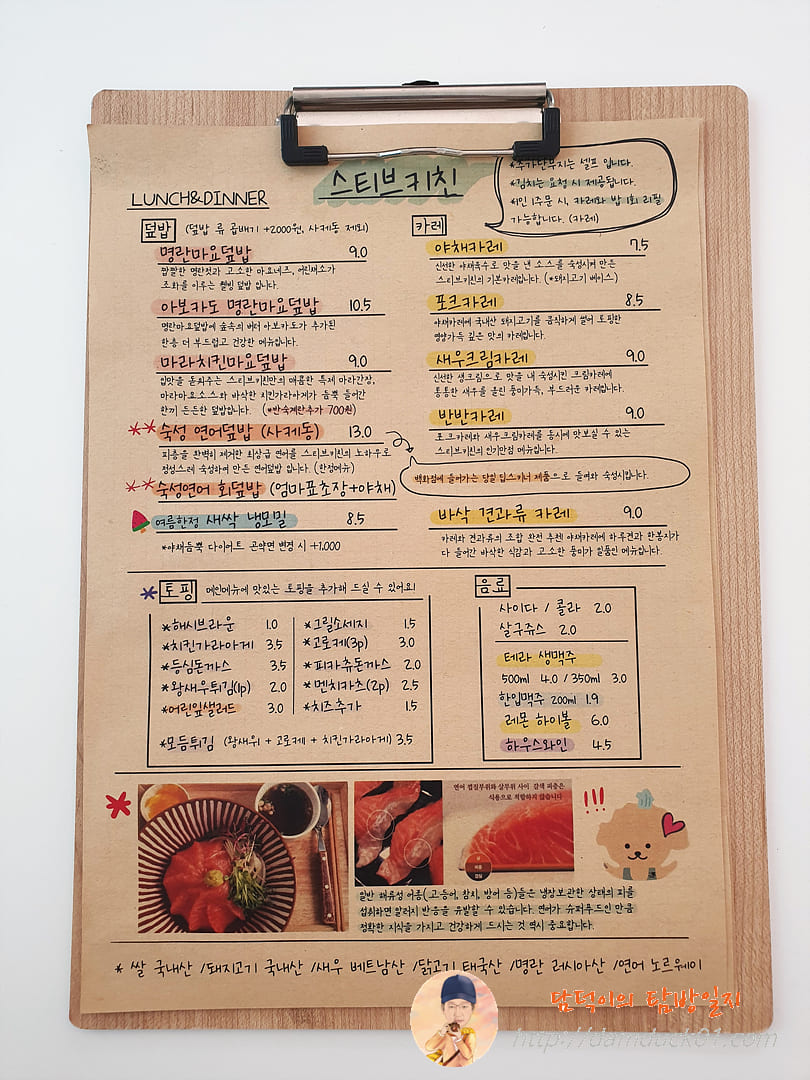 스티브키친
LUNCH&DINNER
*추가단무지는 셀프 입니다.
*김치는 요청 시 제공됩니다.
*1인 1주문 시, 카레와 밥 1회 리필
가능합니다. (카레)
덮밥 (덮밥 류 곱배기 +2000원, 사케동 제외)
명란마요덮밥 9.0
짭짤한 명란젓과 고소한 마요네즈, 어린채소가
조화를 이루는 웰빙 덮밥 입니다.
아보카도 명란마요덮밥 10.5
명란마요덮밥에 숲속의 버터 아보카도가 추가된
한층 더 부드럽고 건강한 메뉴입니다.
마라치킨마요덮밥 9.0
입맛을 돋궈주는 스티브키친만의 매콤한 특제 마라간장,
마라마요소스와 바삭한 치킨가라아게가 듬뿍 들어간
한끼 든든한 덮밥입니다. (*반숙계란추가 700원)
**숙성 연어덮밥 (사케동) 13.0
피층을 완벽히 제거한 최상급 연어를 스티브키친의 노하우로
정성스레 숙성하여 만든 연어덮밥 입니다. (한정메뉴)
**숙성연어 회덮밥 (엄마표초장+야채)
여름한정 새싹 냉모밀 8.5
*야채듬뿍 다이어트 곤약면 변경 시 +1,000
카레
야채카레 7.5
신선한 야채육수로 맛을 낸 소스를 숙성시켜 만든
스티브키친의 기본카레입니다. (*돼지고기 베이스)
포크카레 8.5
야채카레에 국내산 돼지고기를 큼직하게 썰어 토핑한
영양가득 깊은 맛의 카레입니다.
새우크림카레 9.0
신선한 생크림으로 맛을 내 숙성시킨 크림카레에
통통한 새우를 올린 풍미가득, 부드러운 카레입니다.
반반카레 9.0
포크카레와 새우크림카레를 동시에 맛보실 수 있는
스티브키친의 인기만점 메뉴입니다.
백화점에 들어가는 당일 딥스키너 제품으로 들여와 숙성시킵니다.
바삭 견과류 카레 9.0
카레와 견과류의 조합 완전 추천! 야채카레에 하루견과 한봉지가
다 들어간 바삭한 식감과 고소한 풍미가 일품인 메뉴입니다.
*토핑 메인메뉴에 맛있는 토핑을 추가해 드실 수 있어요!
*해시브라운 1.0
*치킨가라아게 3.5
*등심돈까스 3.5
*왕새우튀김(1p) 2.0
*어린잎샐러드 3.0
*그릴소세지 1.5
*고로케(3p) 3.0
*피카츄돈까스 2.0
*멘치카츠(2p) 2.5
*치즈추가 1.5
*모듬튀김 (왕새우 + 고로케 + 치킨가라아게) 3.5
음료
사이다 / 콜라 2.0
살구쥬스 2.0
테라 생맥주
500ml 4.0 / 350ml 3.0
한입맥주 200ml 1.9
레몬 하이볼 6.0
하우스와인 4.5
연어 껍질부위와 살부위 사이 갈색 피층은
식용으로 적합하지 않습니다
!!!
일반 해류성 어종(고등어, 참치, 방어 등)들은 냉장보관한 상태의 피를
섭취하면 알러지 반응을 유발할 수 있습니다. 연어가 슈퍼푸드인 만큼
정확한 지식을 가지고 건강하게 드시는 것 역시 중요합니다.
* 쌀 국내산 /돼지고기 국내산 /새우 베트남산 /닭고기 태국산 /명란 러시아산 /연어 노르웨이
담덕이의 탐방일지
http://damduck01.com